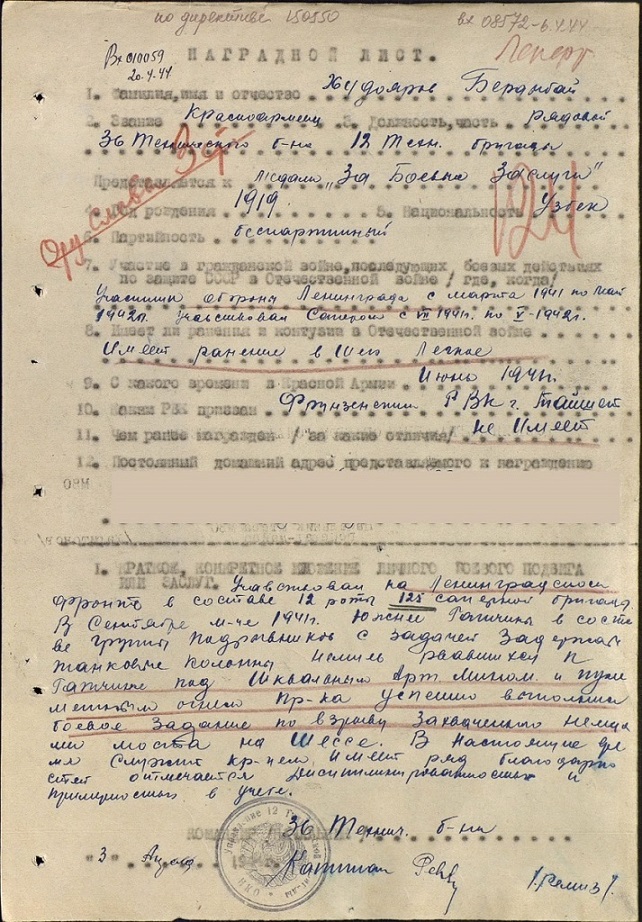 по директиве 150550
вх 08572-6.4.44
Вх 010059
20.4.44
НАГРАДНОЙ ЛИСТ.
1. Фамилия, имя и отчество Худояров
2. Звание Красноармеец 3. Должность, часть рядовой
36 Технического б-на 12 Техн. бригады
Представляется к медали „За Боевые Заслуги"
Славы 3 ст
4. Год рождения 1919. 5. Национальность Узбек
6. Партийность беспартийный
7. Участие в гражданской войне, последующих боевых действиях
по защите СССР в Отечественной войне /где, когда/
Участник обороны Ленинграда с марта 1941 по май
1942г. участвовал Сапером с VII 1941г. по V-1942г.
8. Имеет ли ранения и контузии в Отечественной войне
Имеет ранение в Шею Легкое
9. С какого времени в Красной Армии Июнь 1941г.
10. Каким РВК призван Фрунзенским РВК г. Ташкент
11. Чем ранее награжден /за какие отличия/ не Имеет
12. Постоянный домашний адрес представляемого к награждению
I. КРАТКОЕ, КОНКРЕТНОЕ ИЗЛОЖЕНИЕ ЛИЧНОГО БОЕВОГО ПОДВИГА
ИЛИ ЗАСЛУГ. Участвовал на Ленинградском
фронте в составе 12 роты 125 саперной бригады
В Сентябре м-це 1941г. Южнее Гатчины в соста
ве группы подрывников с задачей Задержать
танковые колонны рвавшихся к
Гатчине под Шквальным Арт. Мином. и пуле
метным огнем Пр-ка успешно выполнил
боевое Задание по взрыву Захваченного немца
ми моста на Шоссе. В настоящие вре
мя Служит Имеет ряд благодарно
стей отмечается дисциплинированностью и
примерностью в учебе.
КОМАНДИР 36 Технич. б-на
"3" 194
Капитан